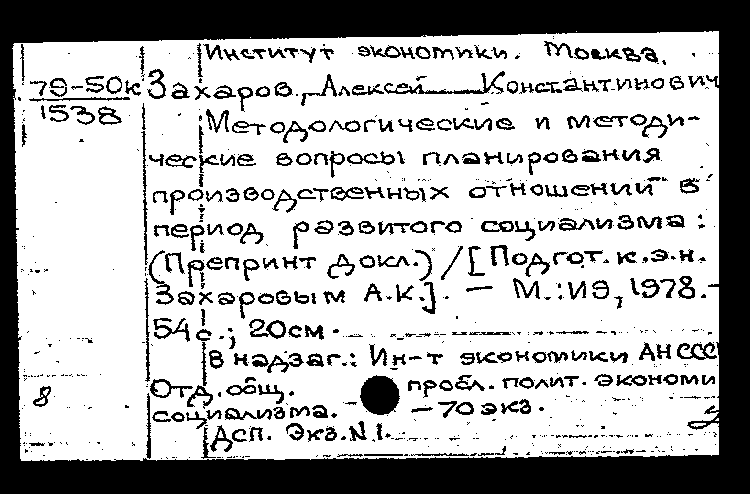 Институт экономики. Москва.
79-50к Захаров, Алексей Константинович
1538
Методологические и методи-
ческие вопросы планирования
производственных отношений в
период развитого социализма:
(Препринт докл.) / [Подгот. к.э.н.
Захаровым А.К.]. — М.: ИЭ, 1978.-
54 с.; 20см.
В надзаг.: Ин-т экономики АН СССР
8 Отд. общ. пробл. полит. экономи
социализма. — 70 экз.
Дсп. Экз. N 1.